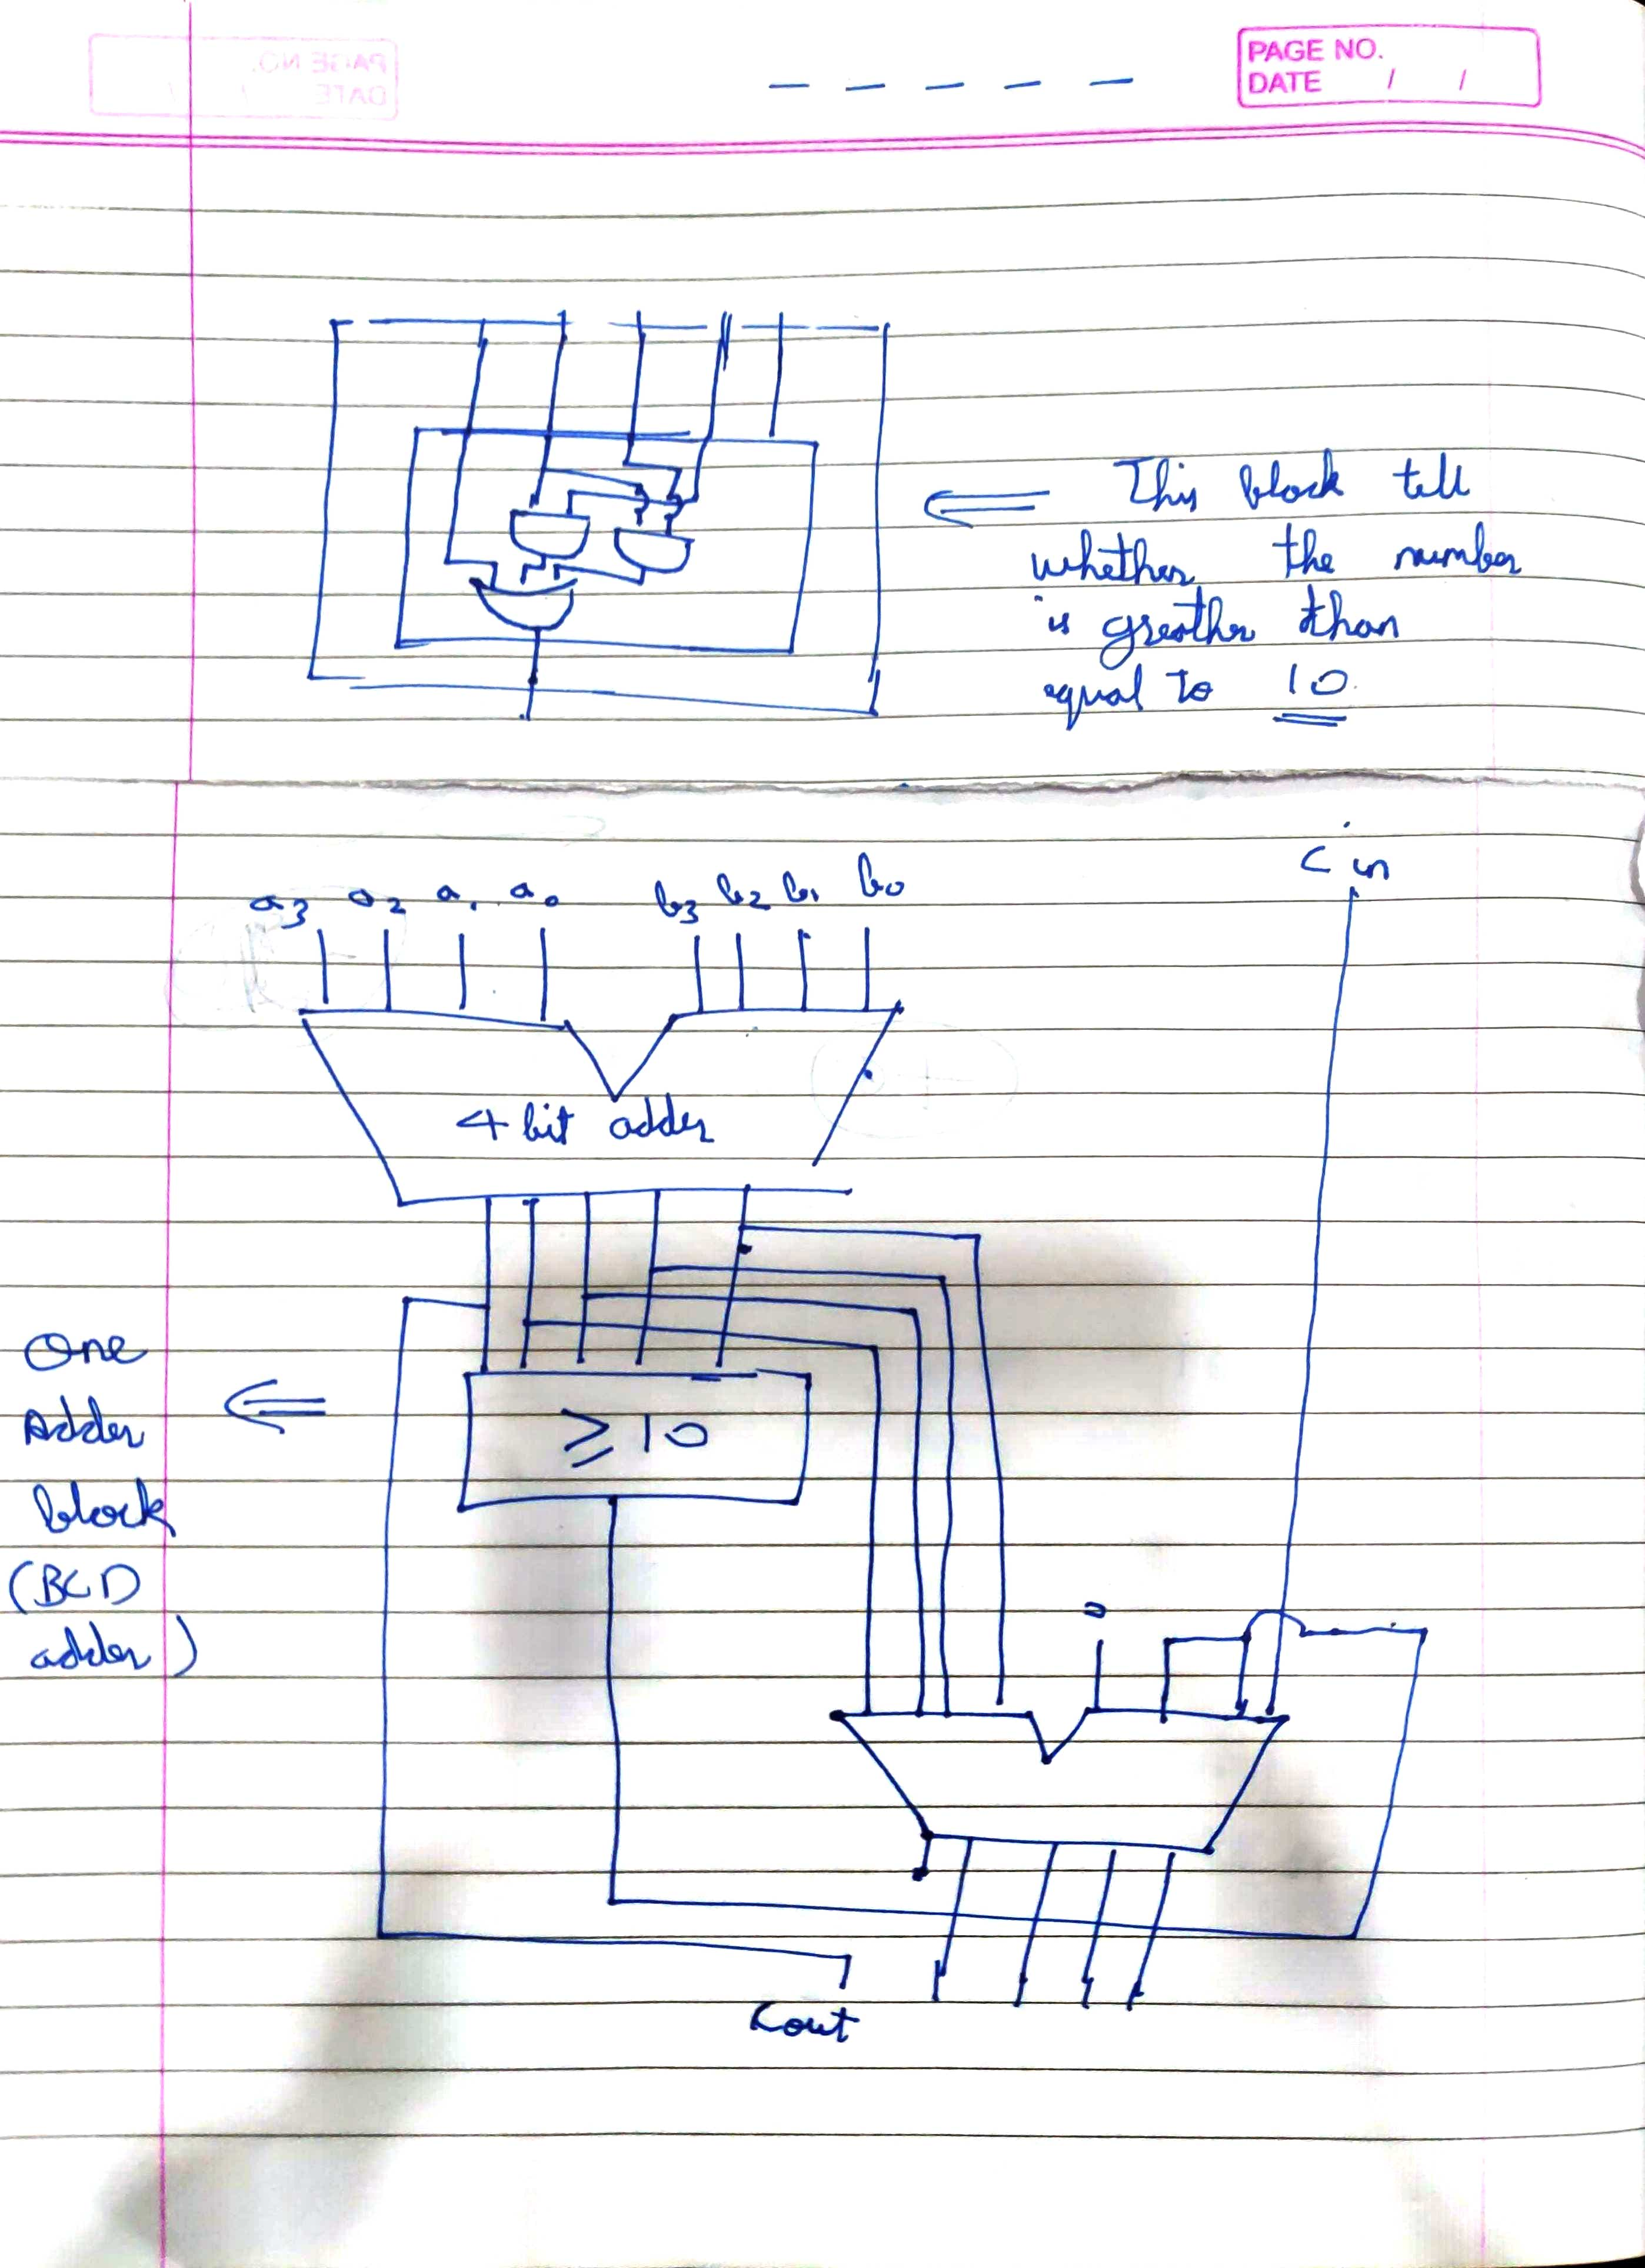 PAGE NO.
DATE / /
This block tell
whether the number
is greather than
equal to 10
C in
a3 a2 a1 a0 b3 b2 b1 b0
4 bit adder
≥ 10
One
Adder
block
(BCD
adder)
0
Cout